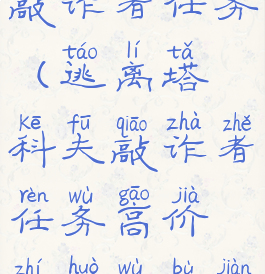 敲诈者任务
táo lí tǎ
（逃离塔
kē fū qiāo zhà zhě
科夫敲诈者
rèn wù gāo jià
任务高价
zhí huò wù bù jiàn